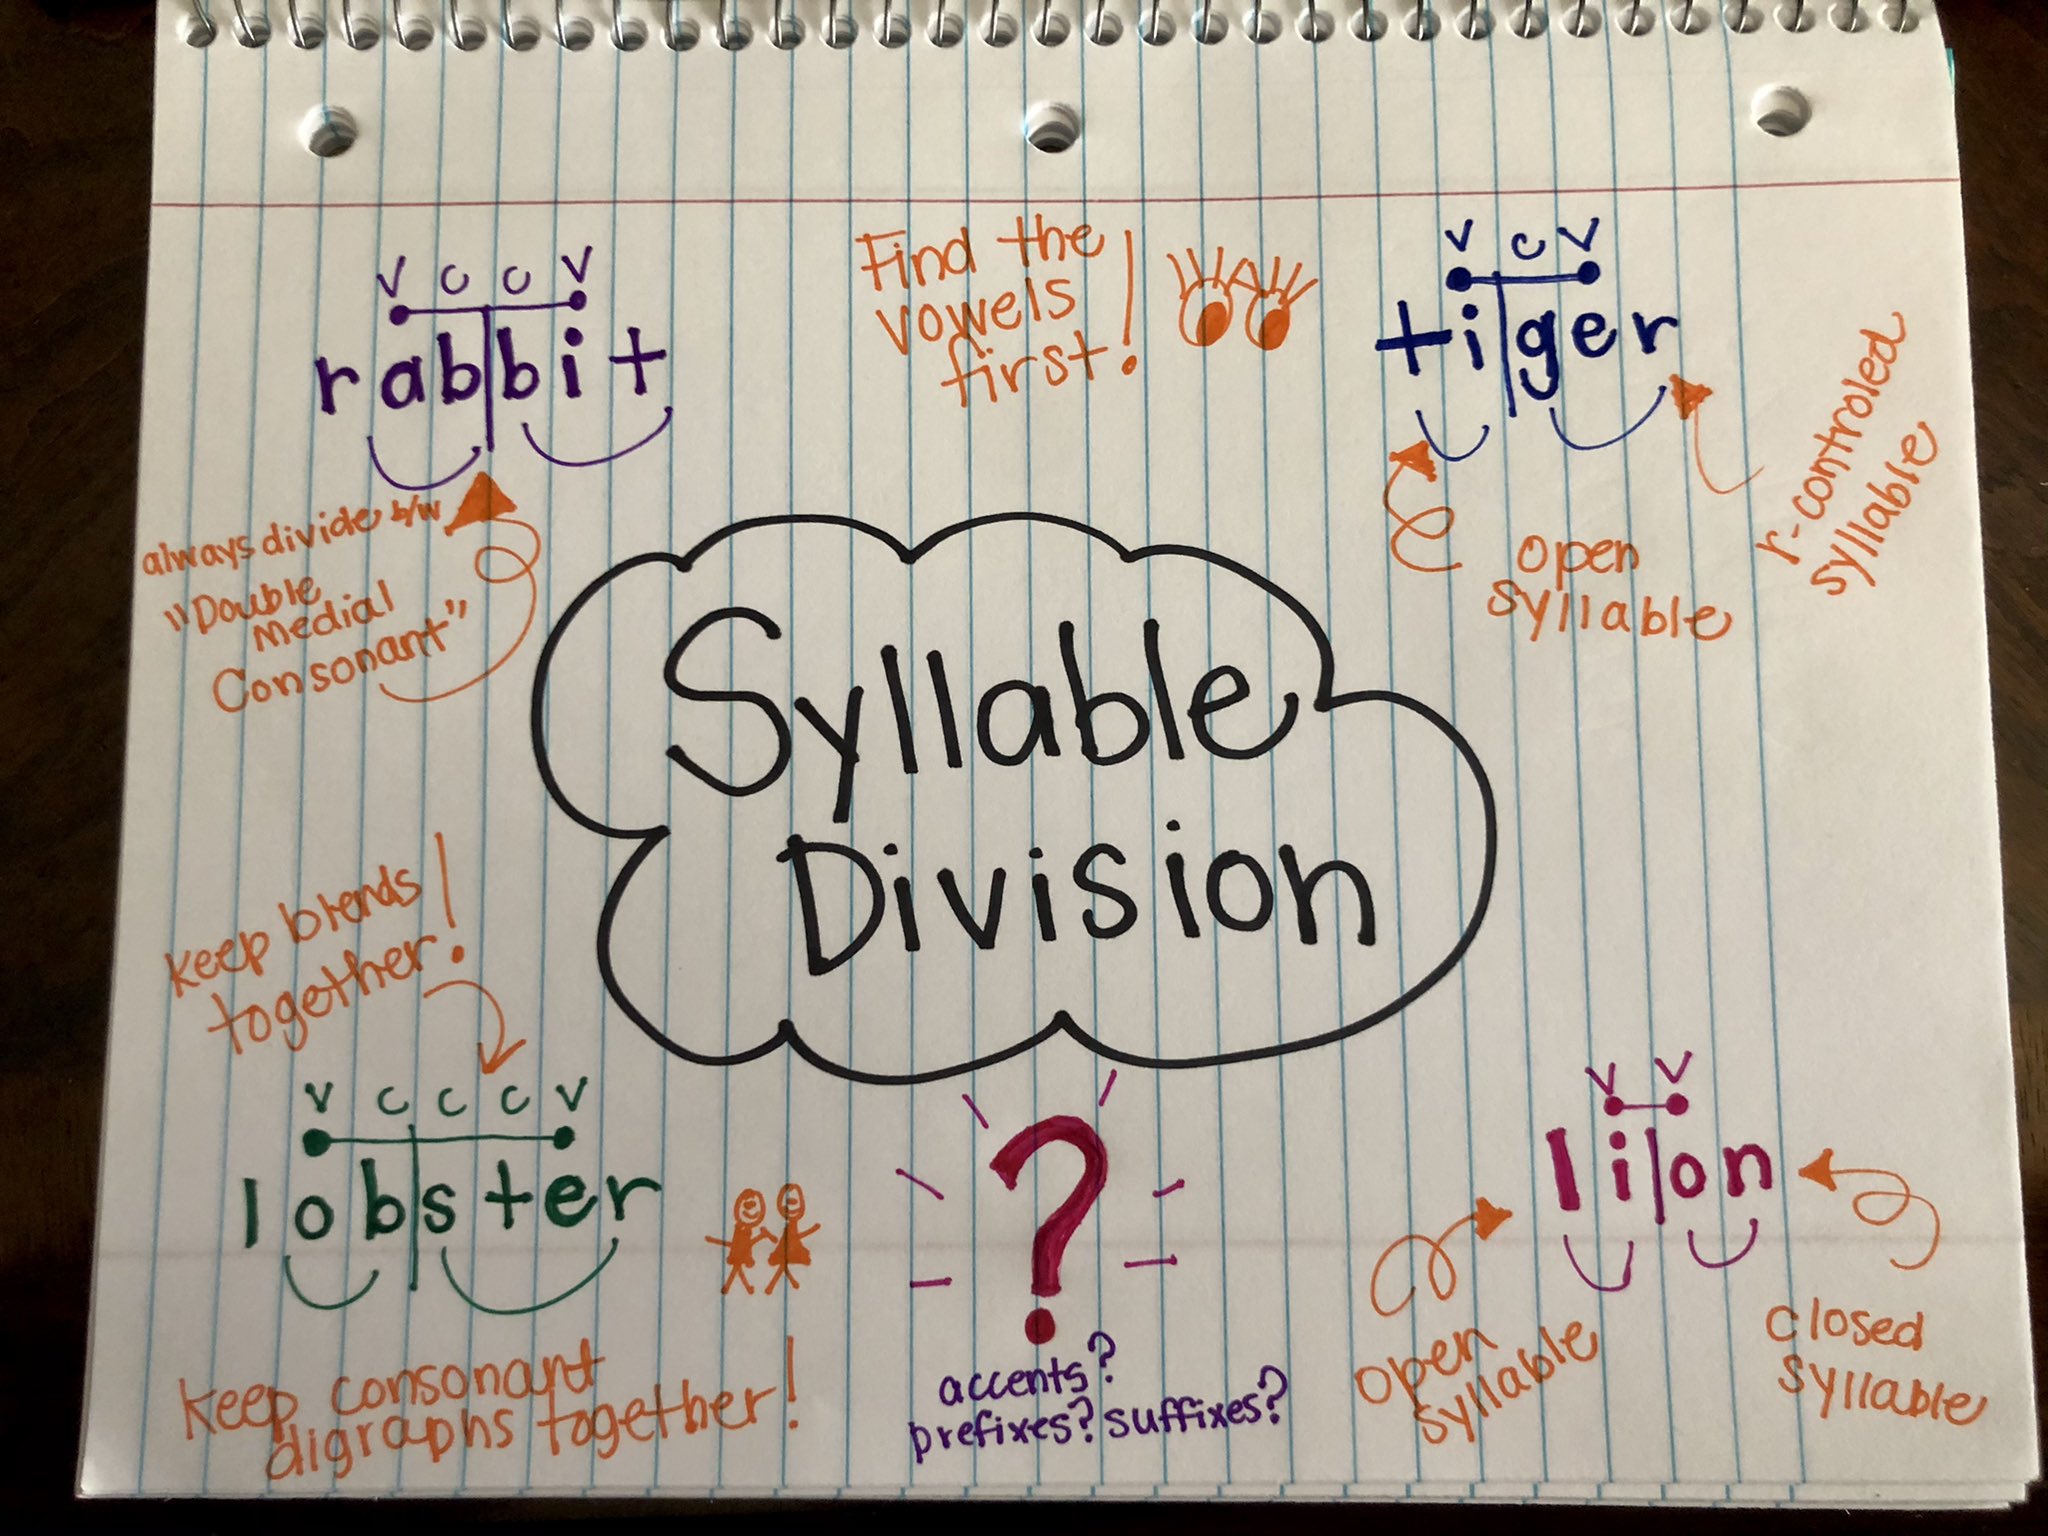 v c c v
rab|bit
always divide b/w
"Double
medial
Consonant"
Find the
vowels
first!
v c v
ti|ger
open
syllable
r-controled
syllable
Syllable
Division
keep blends
together!
v c c c v
lob|ster
keep consonant
digraphs together!
?
accents?
prefixes? suffixes?
v v
li|on
open
syllable
closed
syllable